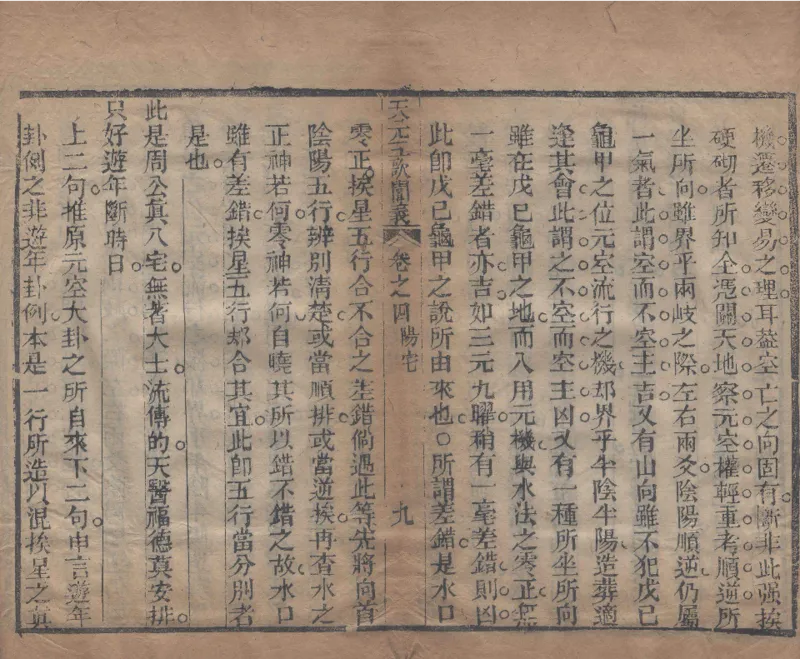 機遷移變易之理耳蓋空亡之向固有斷非此强挨
硬砌者所知全憑關天地察元空權輕重考順逆所
坐所向雖界乎兩岐之際左右兩爻陰陽順逆仍屬
一氣者此謂空而不空主吉又有山向雖不犯戊己
龜甲之位元空流行之機却界乎半陰半陽造葬適
逢其會此謂之不空而空主凶又有一種所坐所向
雖在戊己龜甲之地而入用元機與水法之零正無
一毫差錯者亦吉如三元九曜稍有一毫差錯則凶
此卽戊己龜甲之說所由來也○所謂差錯是水口
天元五歌闡義 卷之四陽宅 九
零正挨星五行合不合之差錯倘遇此等先將向首
陰陽五行辨別清楚或當順排或當逆挨再查水之
正神若何零神若何自曉其所以錯不錯之故水口
雖有差錯挨星五行却合其宜此卽五行當分別者
是也
此是周公眞八宅無著大士流傳的天醫福德莫安排
只好遊年斷時日
上二句推原元空大卦之所自來下二句申言遊年
卦例之非遊年卦例本是一行所造以混挨星之眞